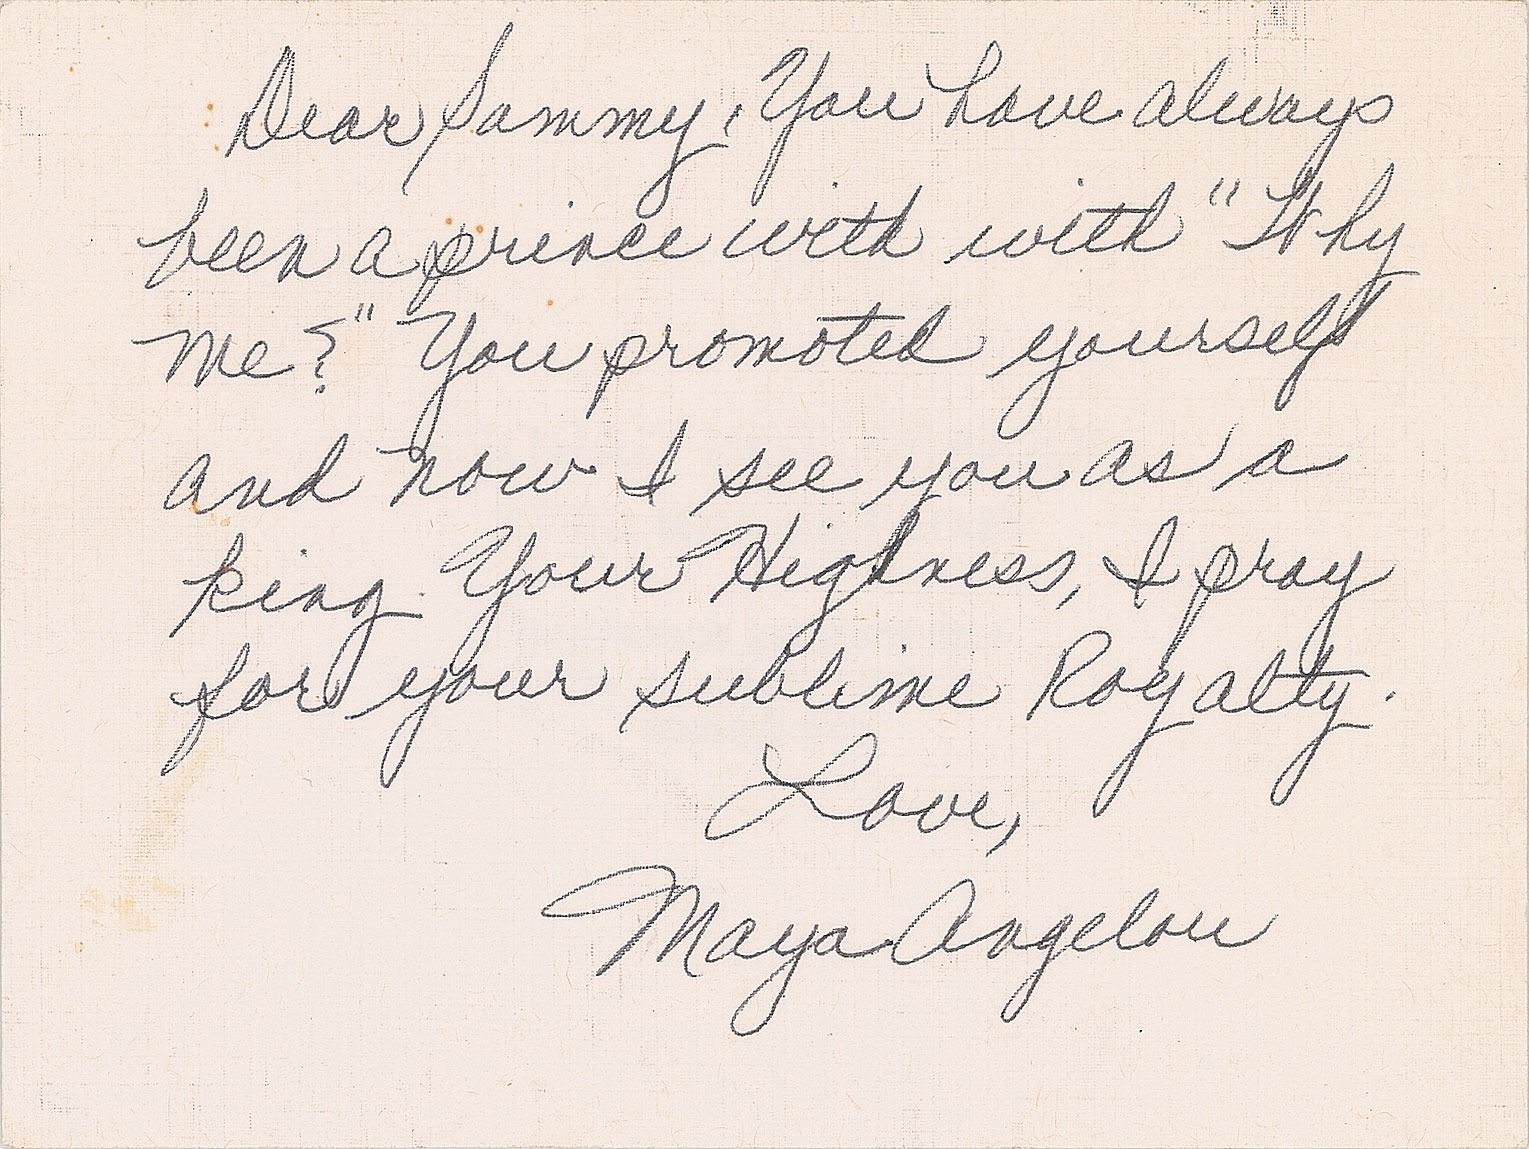 Dear Sammy, You have always
been a prince with with "Why
Me?" You promoted yourself
and now I see you as a
king. Your Highness, I pray
for your sublime Royalty.
Love,
Maya Angelou